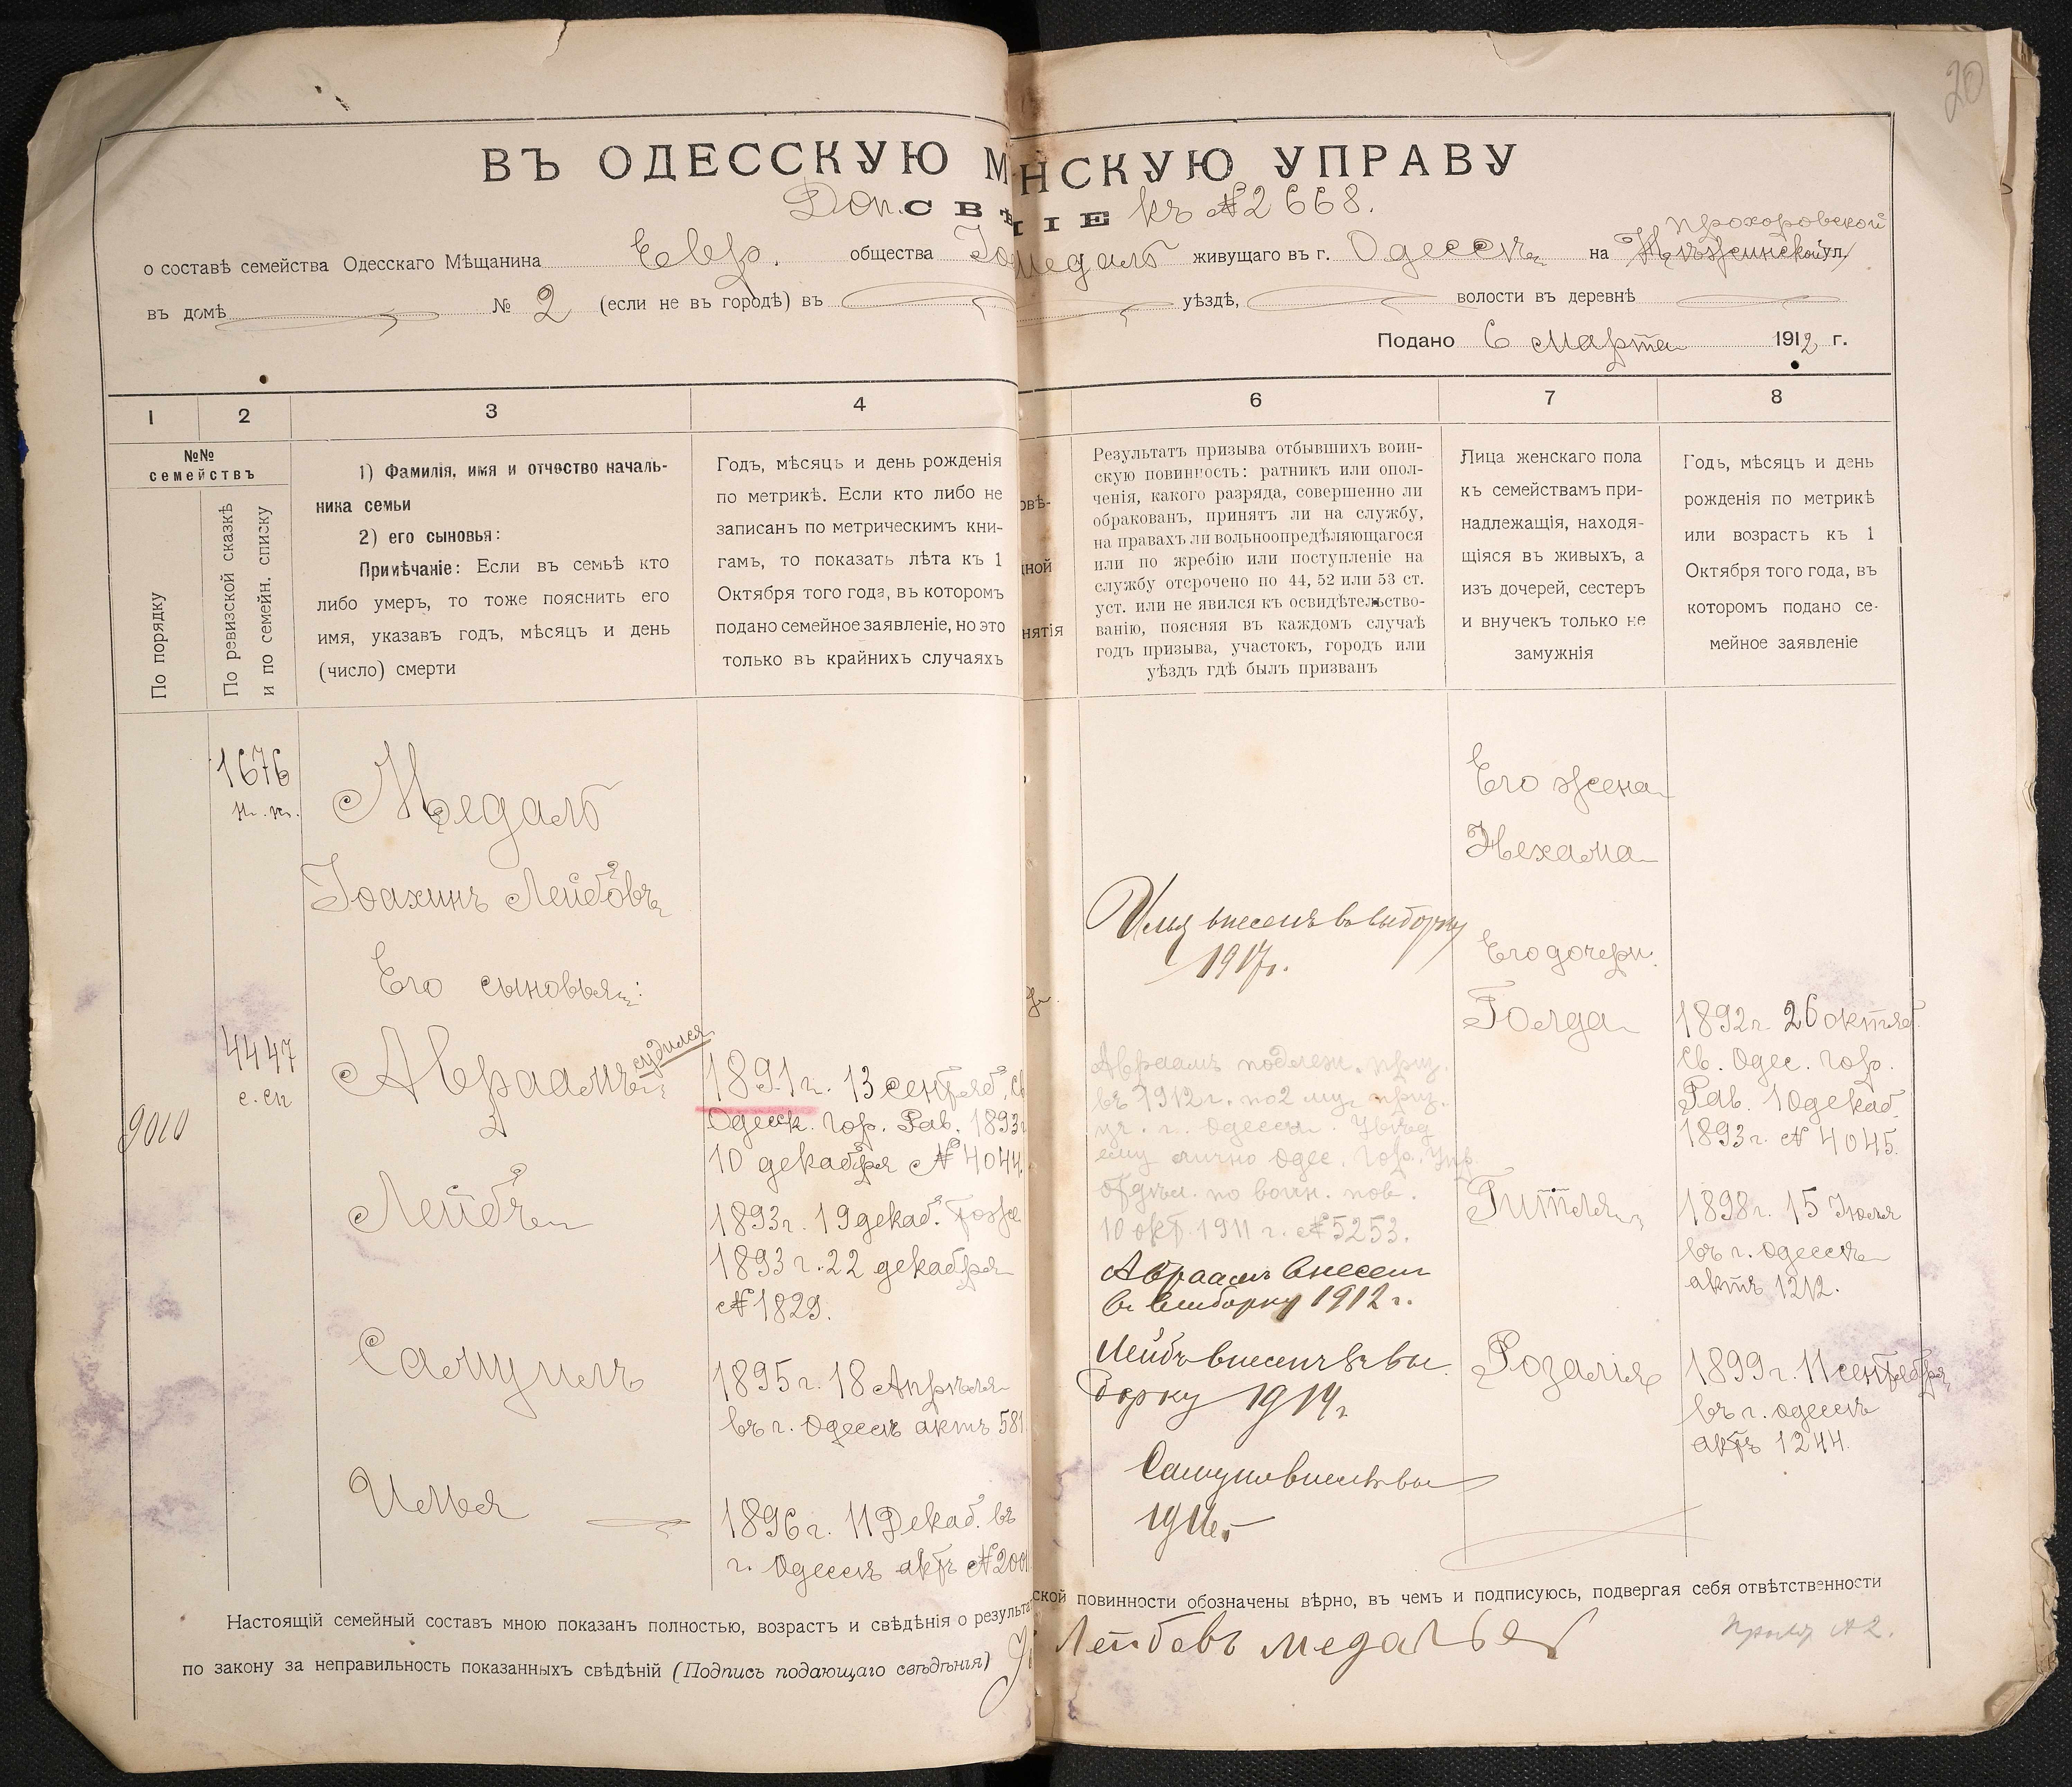 20
ВЪ ОДЕССКУЮ М НСКУЮ УПРАВУ
Доп. СВѢ ІЕ къ № 2668.
Прохоровской
о составѣ семейства Одесскаго Мѣщанина Евр. общества Іо Медаль живущаго въ г. Одессѣ на Нѣжинской ул.
въ домѣ № 2 (если не въ городѣ) въ уѣздѣ, волости въ деревнѣ
Подано 6 Марта 1912 г.
1 2 3 4 6 7 8
№№
семействъ
По порядку
По ревизской сказкѣ
и по семейн. списку
1) Фамилія, имя и отчество началь-
ника семьи
2) его сыновья:
Примѣчаніе: Если въ семьѣ кто
либо умеръ, то тоже пояснить его
имя, указавъ годъ, мѣсяцъ и день
(число) смерти
Годъ, мѣсяцъ и день рожденія
по метрикѣ. Если кто либо не
записанъ по метрическимъ кни-
гамъ, то показать лѣта къ 1
Октября того года, въ которомъ
подано семейное заявленіе, но это
только въ крайнихъ случаяхъ
овѣ-
ной
нятія
Результатъ призыва отбывшихъ воин-
скую повинность: ратникъ или опол-
ченія, какого разряда, совершенно ли
обракованъ, принятъ ли на службу,
на правахъ ли вольноопредѣляющагося
или по жребію или поступленіе на
службу отсрочено по 44, 52 или 53 ст.
уст. или не явился къ освидѣтельство-
ванію, поясняя въ каждомъ случаѣ
годъ призыва, участокъ, городъ или
уѣздъ гдѣ былъ призванъ
Лица женскаго пола
къ семействамъ при-
надлежащія, находя-
щіяся въ живыхъ, а
изъ дочерей, сестеръ
и внучекъ только не
замужнія
Годъ, мѣсяцъ и день
рожденія по метрикѣ
или возрасть къ 1
Октября того года, въ
которомъ подано се-
мейное заявленіе
1676
Медаль
Іоахимъ Лейбовъ
Его сыновья:
4447
с. сп
9010
Авраамъ судился
1891 г. 13 сентяб. св
Одесск. Гор. Рав. 1893 г
10 декабря № 4044.
Лейбъ
1893 г. 19 декаб. тоже
1893 г. 22 декабря
№ 1829.
Самуилъ
1895 г. 18 Апрѣля
въ г. Одессѣ актъ 581
Илья
1896 г. 11 Декаб. въ
г. Одессѣ актъ № 200
Илья внесенъ въ выборку
1917 г.
Авраамъ подлеж. приз.
въ 1912 г. по 2 му приз.
уч. г. Одессы. Увѣд
ему лично Одес. Гор. Упр.
отдѣл. по воин. пов.
10 окт. 1911 г. № 5253.
Авраам внесен
в выборку 1912 г.
Лейбъ внесенъ въ вы
борку 1914 г
Его жена
Нехама
Его дочери.
Голда
1892 г. 26 октяб.
Св. Одес. Гор.
Рав. 10 декаб.
1893 г. № 4045.
Гитля
1898 г. 15 Іюля
въ г. Одессѣ
актъ 1212.
Розалія
1899 г. 11 сентября
въ г. Одессѣ
актъ 1244.
Настоящій семейный составъ мною показанъ полностью, возрастъ и свѣдѣнія о результа ской повинности обозначены вѣрно, въ чемъ и подписуюсь, подвергая себя отвѣтственности
по закону за неправильность показанныхъ свѣдѣній (Подпись подающаго свѣдѣнія) Лейбовъ Медаль